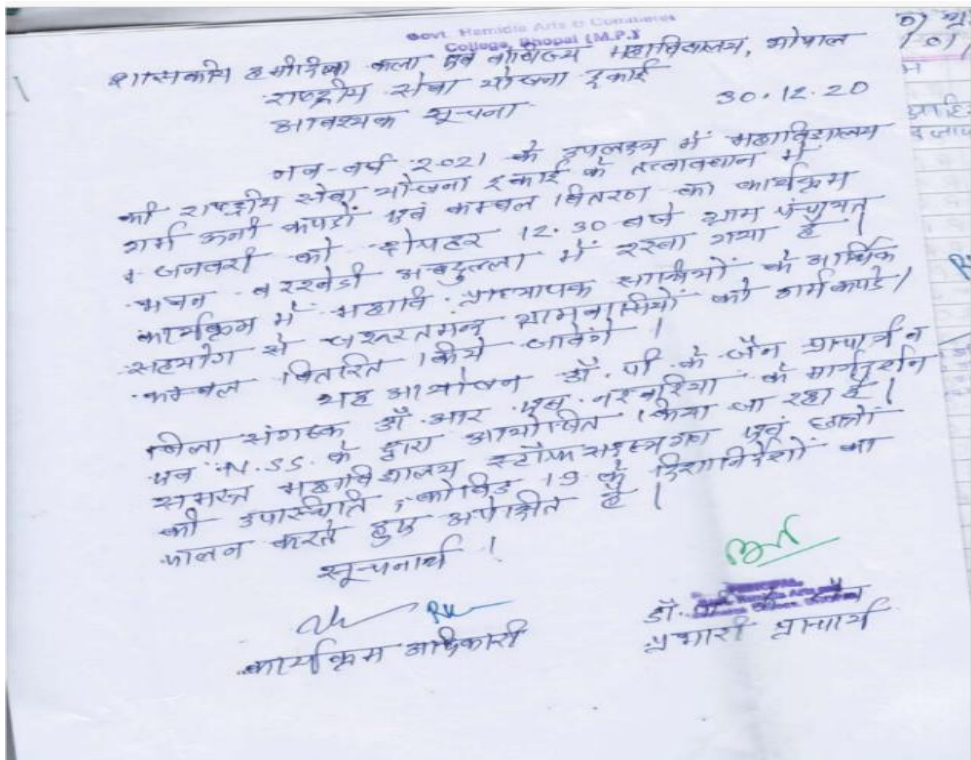 Govt. Hamidia Arts & Commerce
College, Bhopal (M.P.)
शासकीय हमीदिया कला एवं वाणिज्य महाविद्यालय, भोपाल
राष्ट्रीय सेवा योजना इकाई
आवश्यक सूचना 30.12.20
नव-वर्ष 2021 के उपलक्ष्य में महाविद्यालय
की राष्ट्रीय सेवा योजना इकाई के तत्वावधान में
गर्म ऊनी कपड़ों एवं कम्बल वितरण का कार्यक्रम
जनवरी को दोपहर 12.30 बजे ग्राम पंचायत
भवन बरखेडी अबदुल्ला में रखा गया है।
कार्यक्रम में महावि. प्राध्यापक साथियों के आर्थिक
सहयोग से जरूरतमन्द ग्रामवासियों को गर्म कपडे/
कम्बल वितरित किये जावेंगे।
यह आयोजन डॉ. पी. के. जैन प्राचार्य व
जिला संगठक डॉ. आर. एस. नरवरिया के मार्गदर्शन
एवं N.SS. के द्वारा आयोजित किया जा रहा है।
समस्त महाविद्यालय स्टॉफ सदस्यगण एवं छात्रों
की उपस्थिति, कोविड 19 के दिशानिर्देशों का
पालन करते हुए अपेक्षित है।
सूचनार्थ!
कार्यक्रम अधिकारी
डॉ. जैन
प्रभारी प्राचार्य